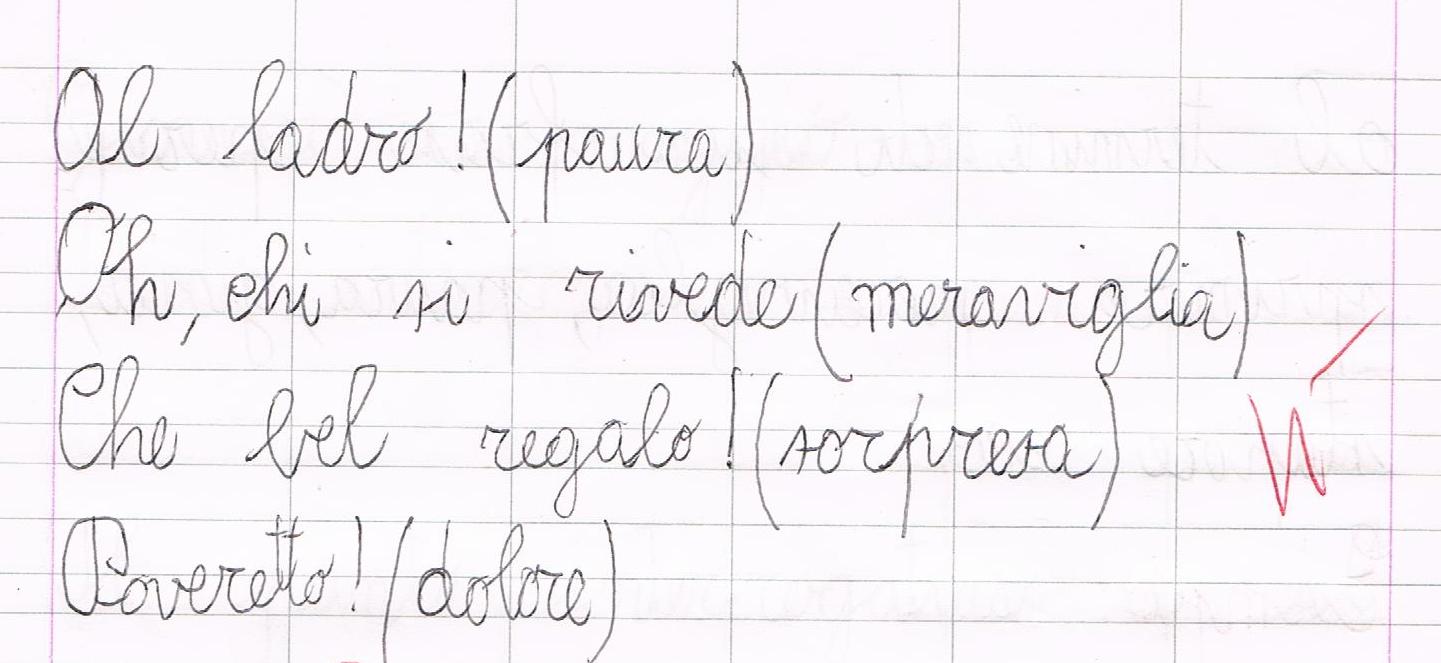 Al ladro! (paura)
Oh, chi si rivede (meraviglia)
Che bel regalo! (sorpresa)
Poveretto! (dolore)